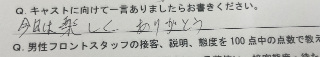 Q. キャストに向けて一言ありましたらお書きください。
今日は楽しく、ありがとう
Q. 男性フロントスタッフの接客、説明、態度を100点中の点数で教え